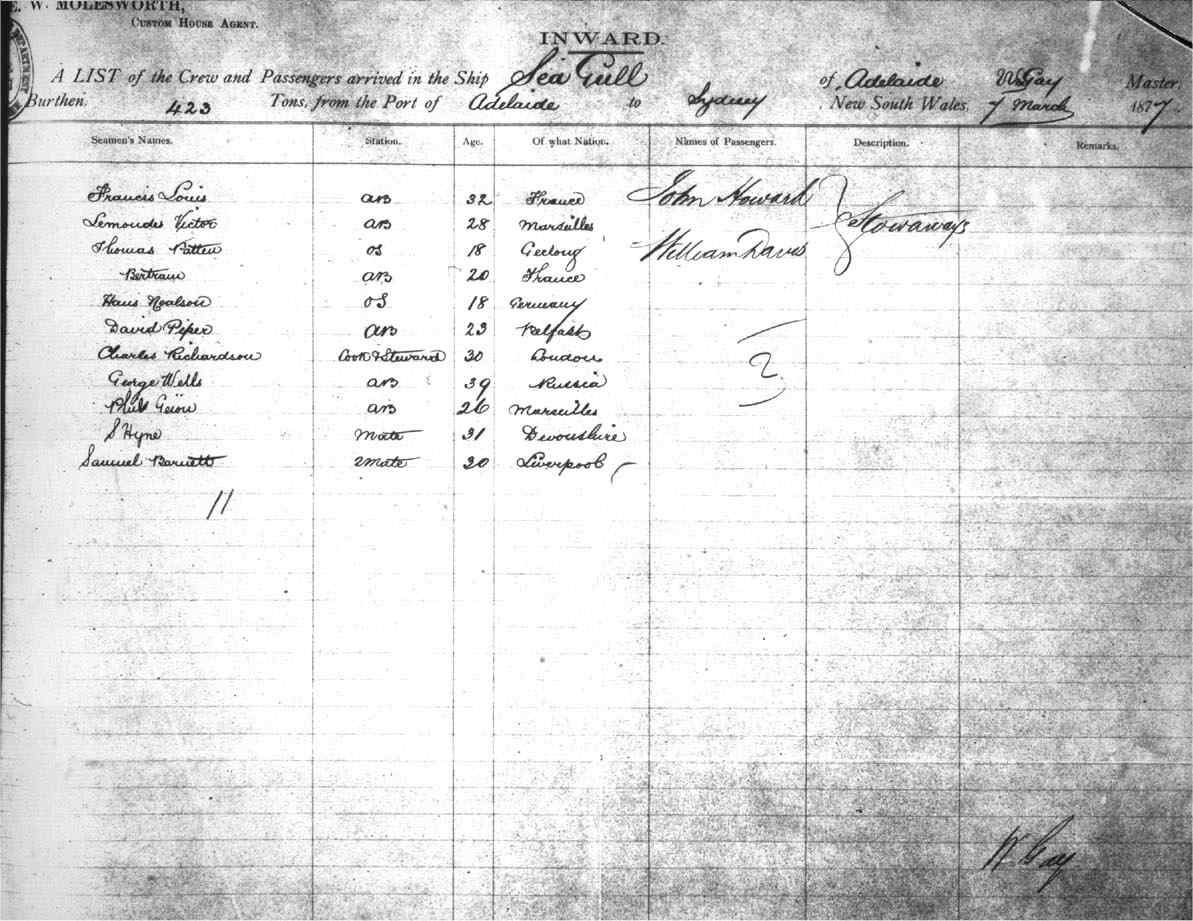 E. W. MOLESWORTH,
CUSTOM HOUSE AGENT.
INWARD.
A LIST of the Crew and Passengers arrived in the Ship Sea Gull of Adelaide W Gay Master
Burthen. 423 Tons, from the Port of Adelaide to Sydney New South Wales. 7 March 1877
Seamen's Names. Station. Age. Of what Nation. Names of Passengers. Description. Remarks.
Francis Louis AB 32 France John Howard
Stowaways
Victor AB 28 Marseilles
Thomas Patten OS 18 Geelong William Davis
Bertram AB 20 France
Hans Nealson OS 18 Germany
David Piper AB 23 Belfast
Charles Richardson Cook & Steward 30 London
2
George Wells AB 39 Russia
AB 26 Marseilles
S Hyne Mate 31 Devonshire
Samuel Barnett 2 Mate 30 Liverpool
11
W Gay